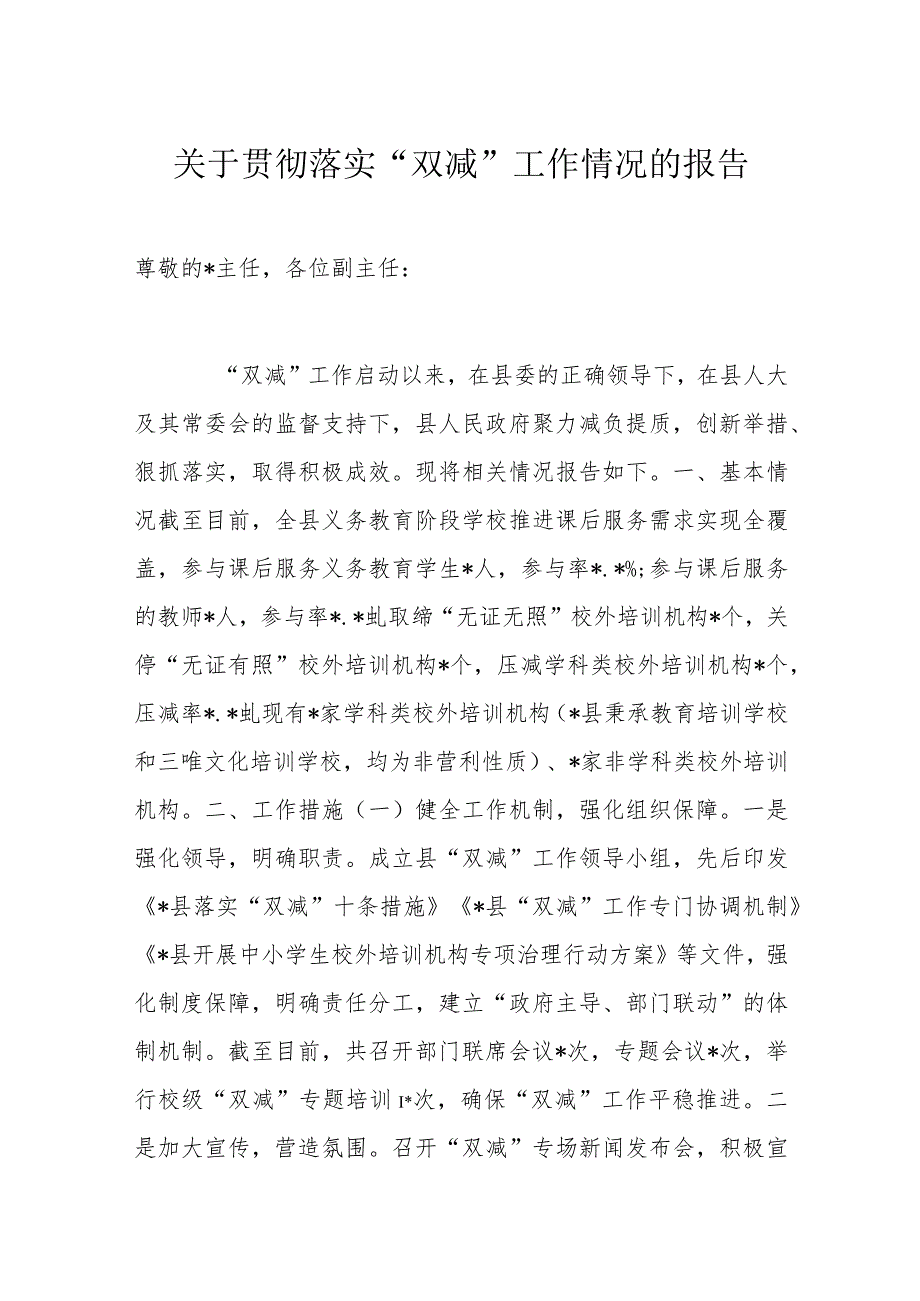 关于贯彻落实“双减”工作情况的报告
尊敬的*主任，各位副主任：
“双减”工作启动以来，在县委的正确领导下，在县人大
及其常委会的监督支持下，县人民政府聚力减负提质，创新举措、
狠抓落实，取得积极成效。现将相关情况报告如下。一、基本情
况截至目前，全县义务教育阶段学校推进课后服务需求实现全覆
盖，参与课后服务义务教育学生*人，参与率*.*%;参与课后服务
的教师*人，参与率*.*虬取缔“无证无照”校外培训机构*个，关
停“无证有照”校外培训机构*个，压减学科类校外培训机构*个，
压减率*.*虬现有*家学科类校外培训机构（*县秉承教育培训学校
和三唯文化培训学校，均为非营利性质）、*家非学科类校外培训
机构。二、工作措施（一）健全工作机制，强化组织保障。一是
强化领导，明确职责。成立县“双减”工作领导小组，先后印发
《*县落实“双减”十条措施》《*县“双减”工作专门协调机制》
《*县开展中小学生校外培训机构专项治理行动方案》等文件，强
化制度保障，明确责任分工，建立“政府主导、部门联动”的体
制机制。截至目前，共召开部门联席会议*次，专题会议*次，举
行校级“双减”专题培训I*次，确保“双减”工作平稳推进。二
是加大宣传，营造氛围。召开“双减”专场新闻发布会，积极宣